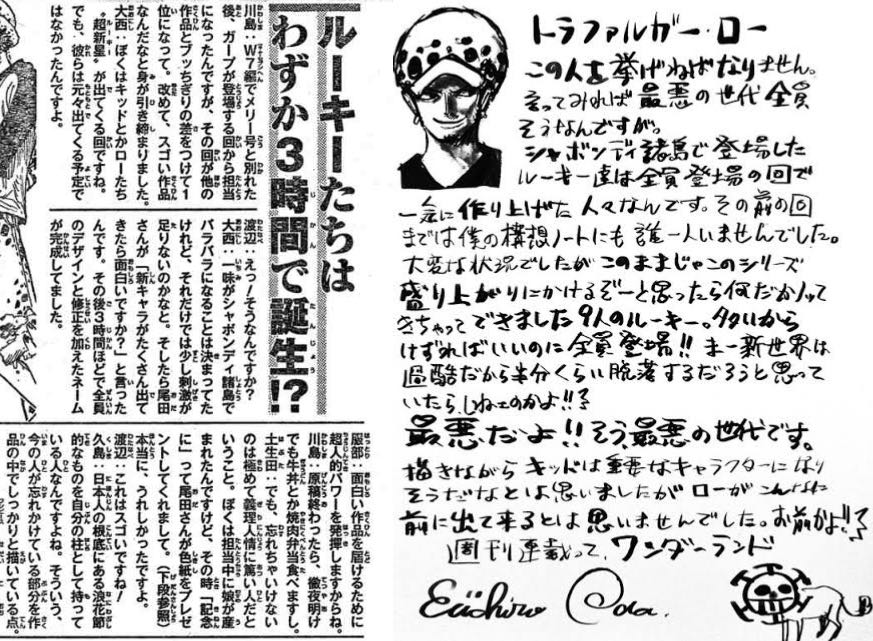 ルーキーたちは
わずか3時間で誕生!?
川島：W7編でメリー号と別れた
後、ガープが登場する回から担当
になったんですが、その回が他の
作品とブッちぎりの差をつけて1
位になって。改めて、スゴい作品
なんだなと身が引き締まりました。
大西：ぼくはキッドとかローたち
“超新星”が出てくる回ですね。
でも、彼らは元々出てくる予定で
はなかったんですよ。
渡辺：えっ！そうなんですか？
大西：一味がシャボンディ諸島で
バラバラになることは決まってた
けれど、それだけでは少し刺激が
足りないのかなと。そしたら尾田
さんが「新キャラがたくさん出て
きたら面白いですか？」と言った
んです。その後3時間ほどで全員
のデザインと修正を加えたネーム
が完成してました。
服部：面白い作品を届けるために
超人的パワーを発揮しますからね。
川島：原稿終わったら、徹夜明け
でも牛丼とか焼肉弁当食べますし。
土生田：でも、忘れちゃいけない
のは極めて義理人情に篤い人だと
いうこと。ぼくは担当中に娘が産
まれたんですけど、その時「記念
に」って尾田さんが色紙をプレゼ
ントしてくれまして。（下段参照）
本当に、うれしかったですよ。
渡辺：これはスゴいですね！
久島：日本人の根底にある浪花節
的なものを自分の柱として持って
いる人なんですよね。そういう、
今の人が忘れかけている部分を作
品の中でしっかりと描いている点。
トラファルガー・ロー
この人を挙げねばなりません。
言ってみれば最悪の世代全員
そうなんですが。
シャボンディ諸島で登場した
ルーキー達は全員登場の回で
一気に作り上げた人々なんです。その前の回
までは僕の構想ノートにも誰一人いませんでした。
大変な状況でしたがこのままじゃこのシリーズ
盛り上がりにかけるぞーと思ったら何だかノッて
きちゃってできました9人のルーキー。多いから
けずればいいのに全員登場!! まー新世界は
過酷だから半分くらい脱落するだろうと思って
いたら、しねェのかよ!!
最悪だよ!! そう最悪の世代です。
描きながらキッドは重要なキャラクターになり
そうだなとは思いましたがローがこんなに
前に出て来るとは思いませんでした。お前かよ!!
週刊連載って、ワンダーランド
Eiichiro Oda.